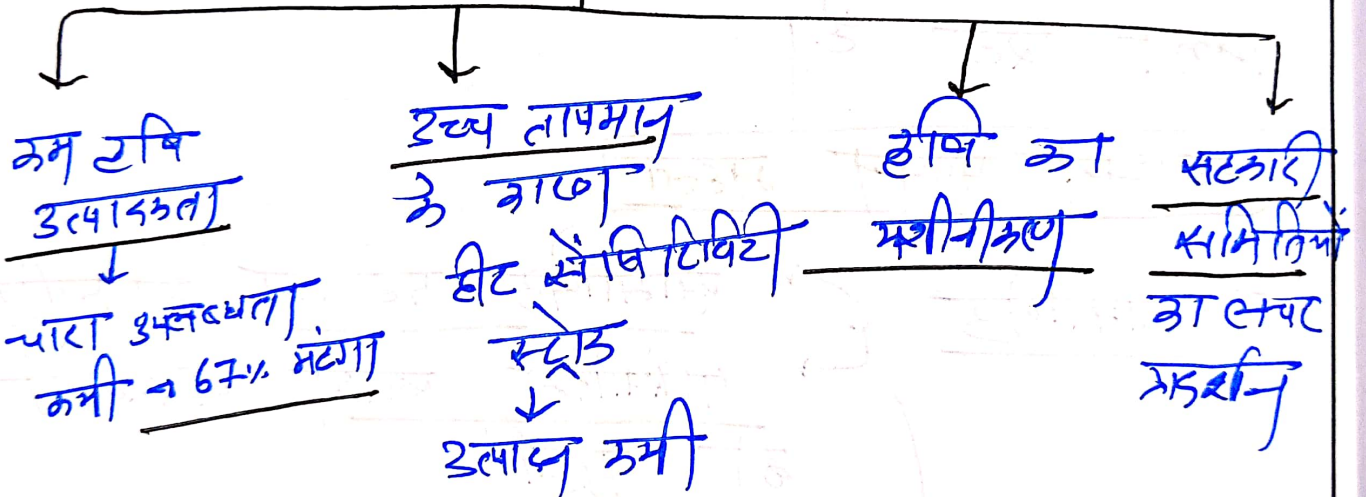 कम कृषि
उत्पादकता
↓
चारा उपलब्धता
कमी → 67% महंगा
उच्च तापमान
के कारण
हीट सेंसिटिविटी
स्ट्रोक
↓
उत्पादन कमी
कृषि का
मशीनीकरण
सहकारी
समितियों
का लचर
प्रदर्शन